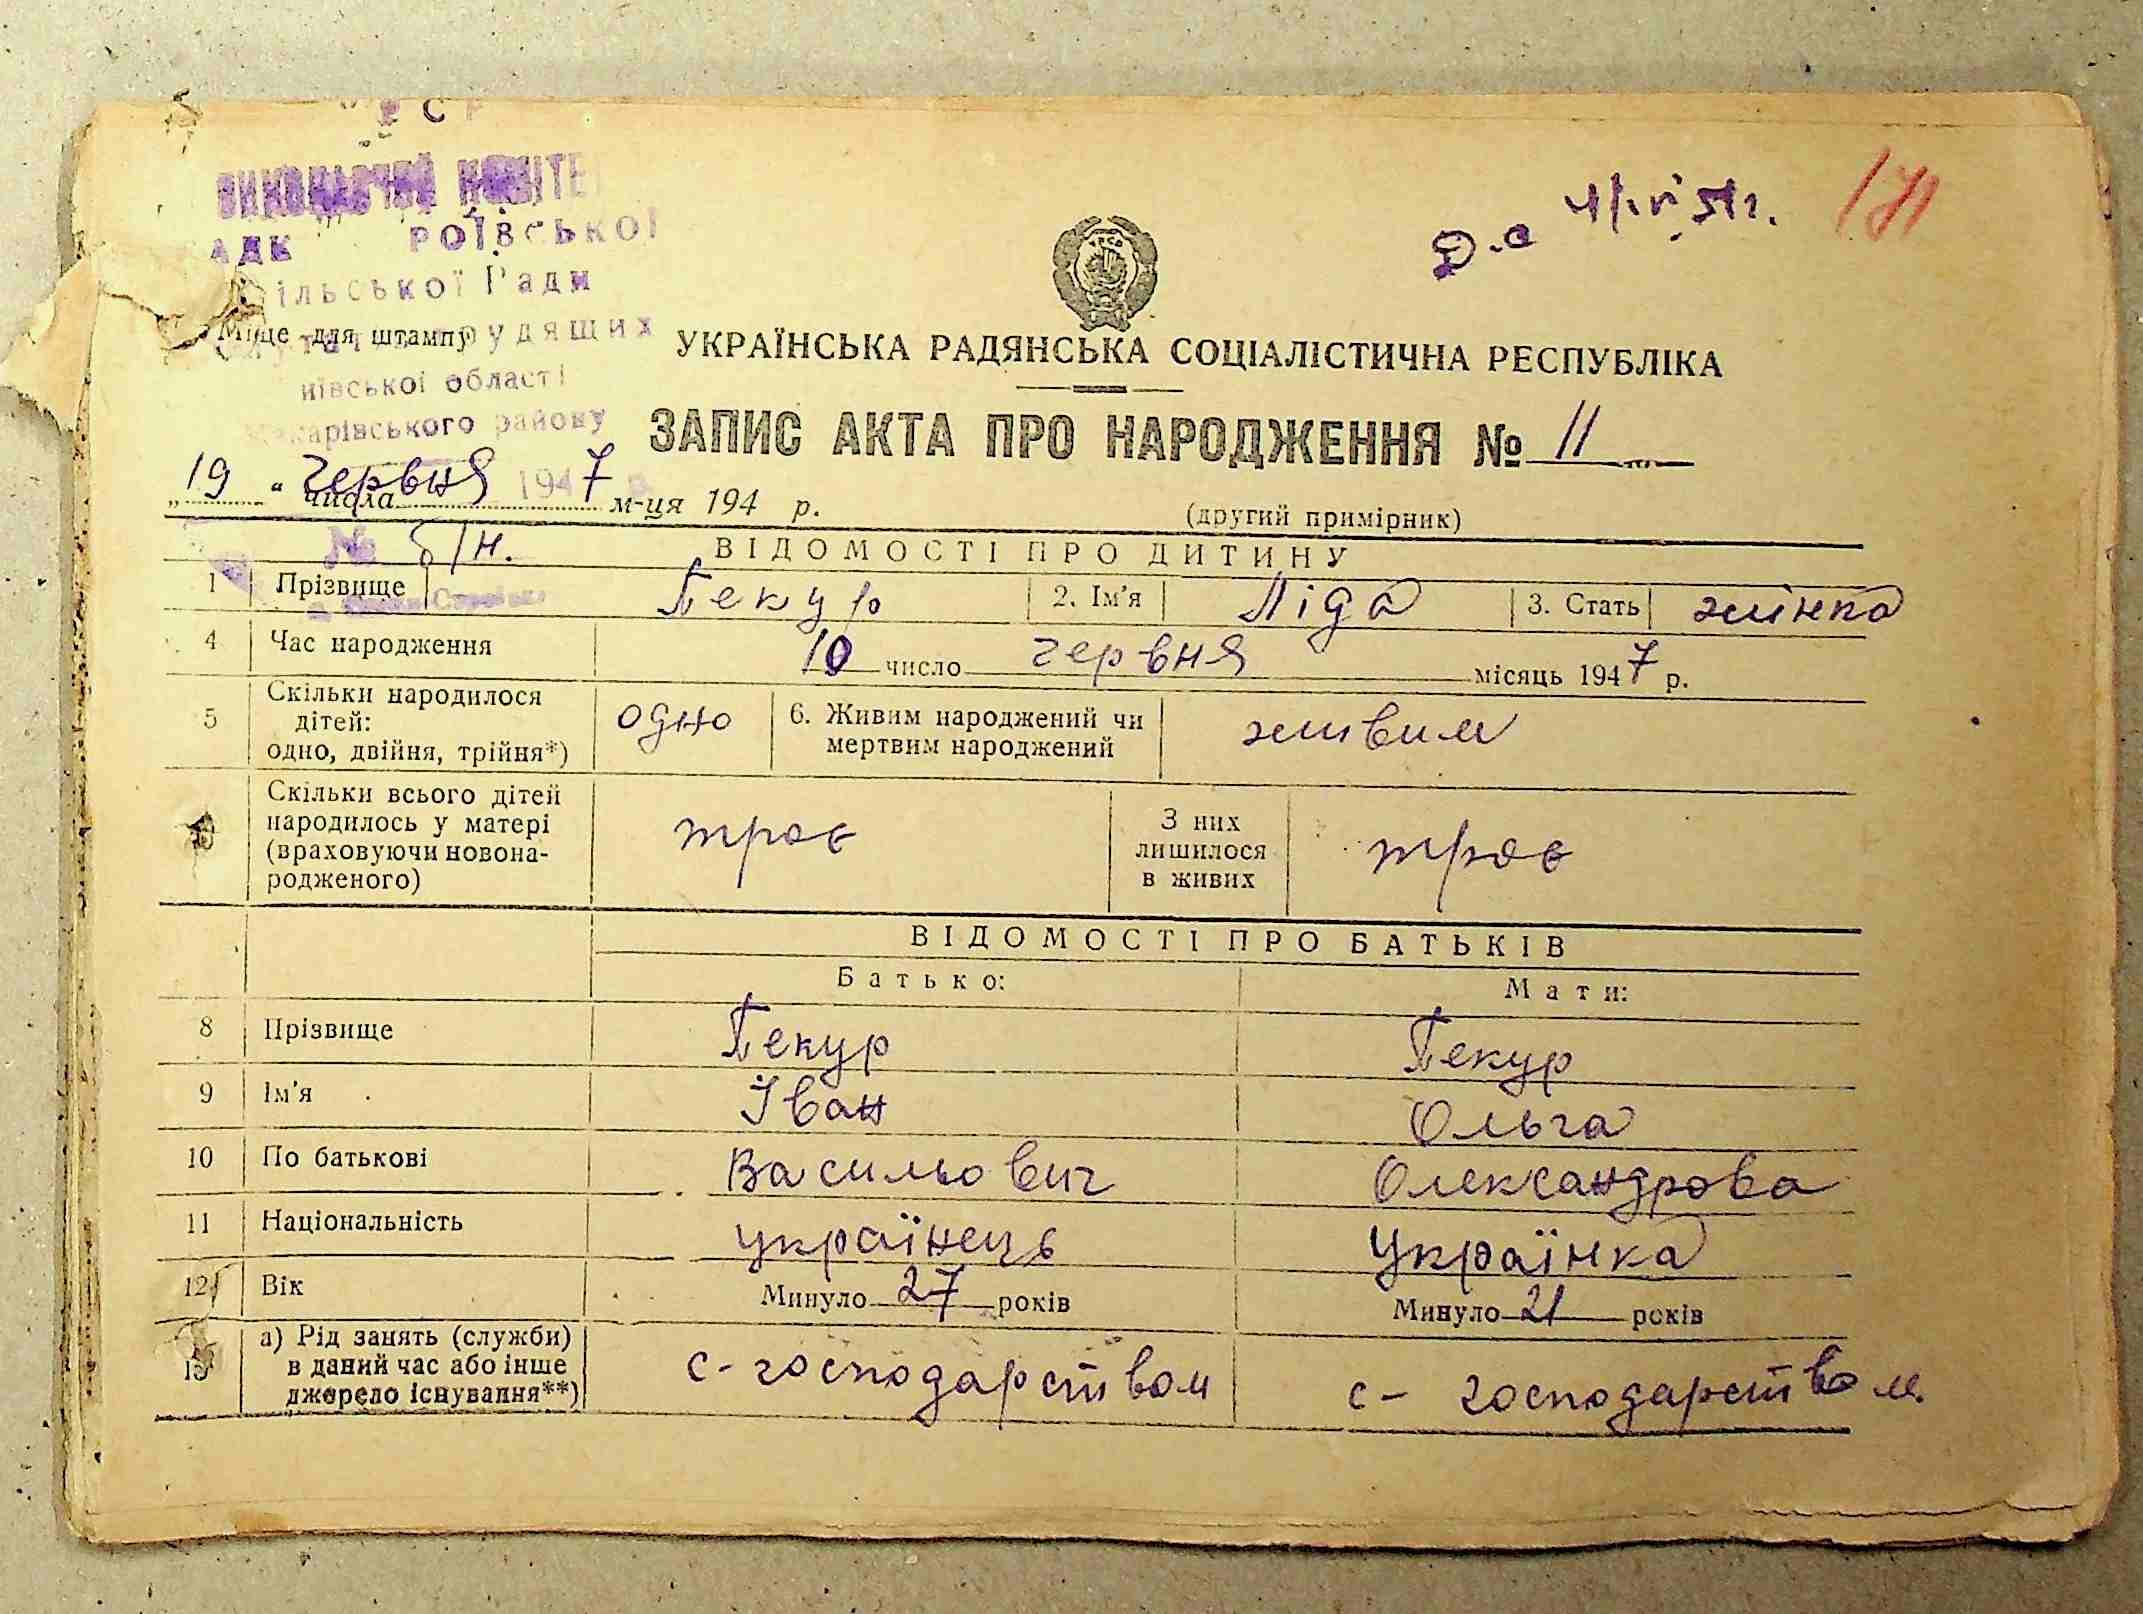 ВИКОНАВЧИЙ КОМІТЕ
РОЇВСЬКОЇ
ільської Ради
Місце для штампу удящих
ївської області
карівського району
Д-а 4/VI 51 г.
171
УКРАЇНСЬКА РАДЯНСЬКА СОЦІАЛІСТИЧНА РЕСПУБЛІКА
ЗАПИС АКТА ПРО НАРОДЖЕННЯ № 11
„19" числа червня 1947 м-ця 194 р.
(другий примірник)
№ б/н.
ВІДОМОСТІ ПРО ДИТИНУ
1 Прізвище Пекур 2. Ім'я Ліда 3. Стать жінка
4 Час народження 10 число червня місяць 1947 р.
5 Скільки народилося дітей: одно, двійня, трійня*) одно 6. Живим народжений чи мертвим народжений живим
Скільки всього дітей народилось у матері (враховуючи новонародженого) троє З них лишилося в живих троє
ВІДОМОСТІ ПРО БАТЬКІВ
Батько: Мати:
8 Прізвище Пекур Пекур
9 Ім'я Іван Ольга
10 По батькові Васильович Олександрова
11 Національність українець українка
12 Вік Минуло 27 років Минуло 21 років
13 а) Рід занять (служби) в даний час або інше джерело існування**) с-господарством с- господарством.